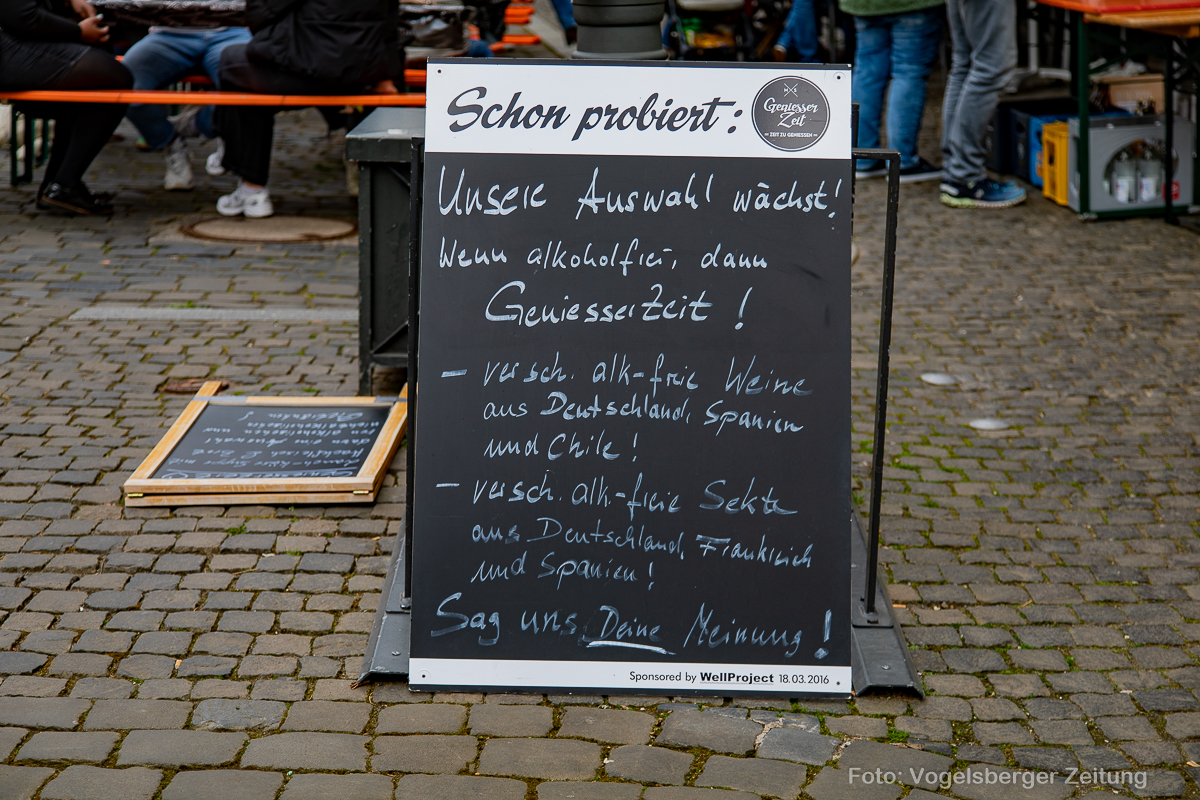 Schon probiert:
Geniesser
Zeit
ZEIT ZU GENIESSEN
Unsere Auswahl wächst!
Wenn alkoholfrei, dann
GeniesserZeit!
- versch. alk-freie Weine
aus Deutschland, Spanien
und Chile!
- versch. alk-freie Sekte
aus Deutschland, Frankreich
und Spanien!
Sag uns Deine Meinung!
Sponsored by WellProject 18.03.2016
Foto: Vogelsberger Zeitung